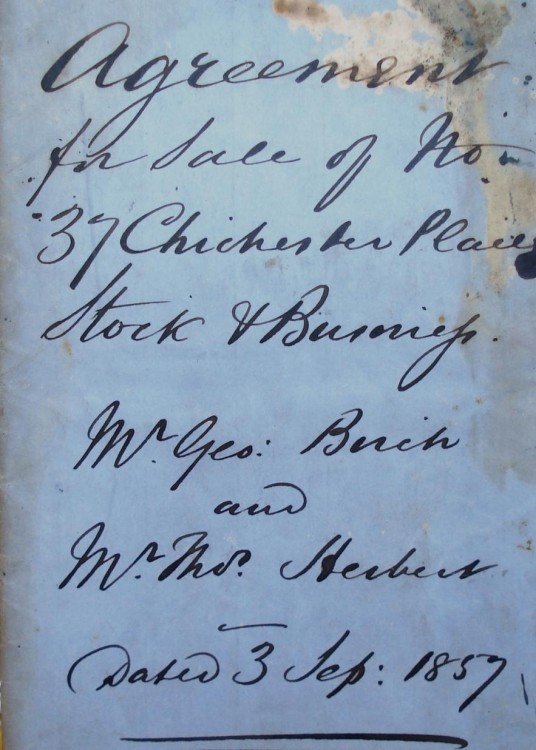 Agreement
for Sale of No
37 Chichester Place
Stock & Business.
Mr. Geo: Birch
and
Mr. Thos. Herbert
Dated 3 Sep: 1857